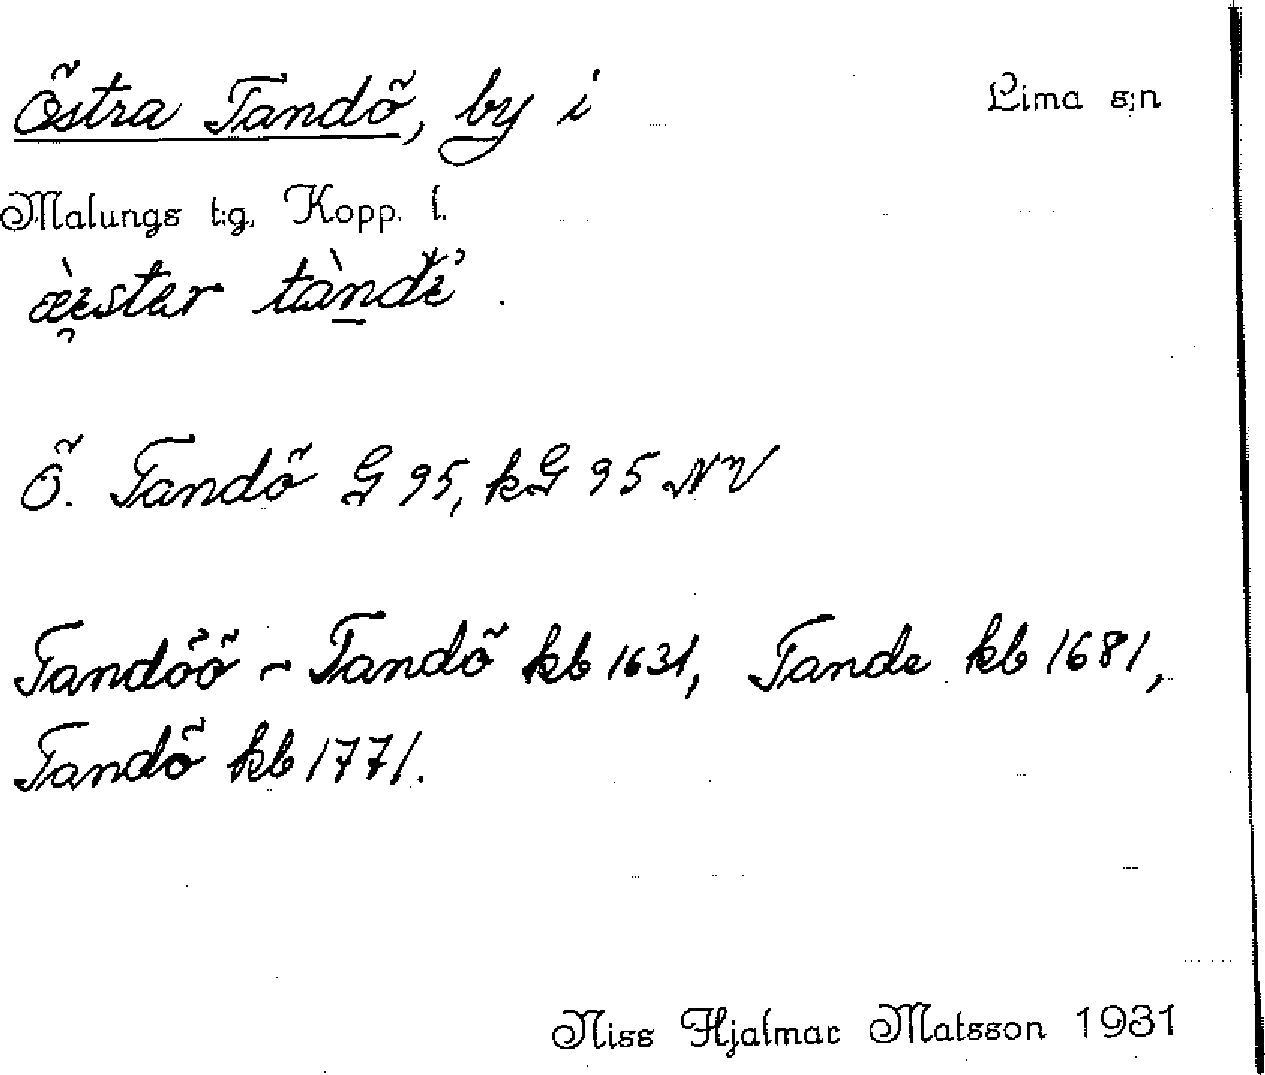 Östra Tandö, by i Lima s:n
Malungs t:g, Kopp. l.
Ö. Tandö G 95, kG 95 NV
Tandöö - Tandö kb 1631, Tande kb 1681,
Tandö kb 1771.
Niss Hjalmar Matsson 1931